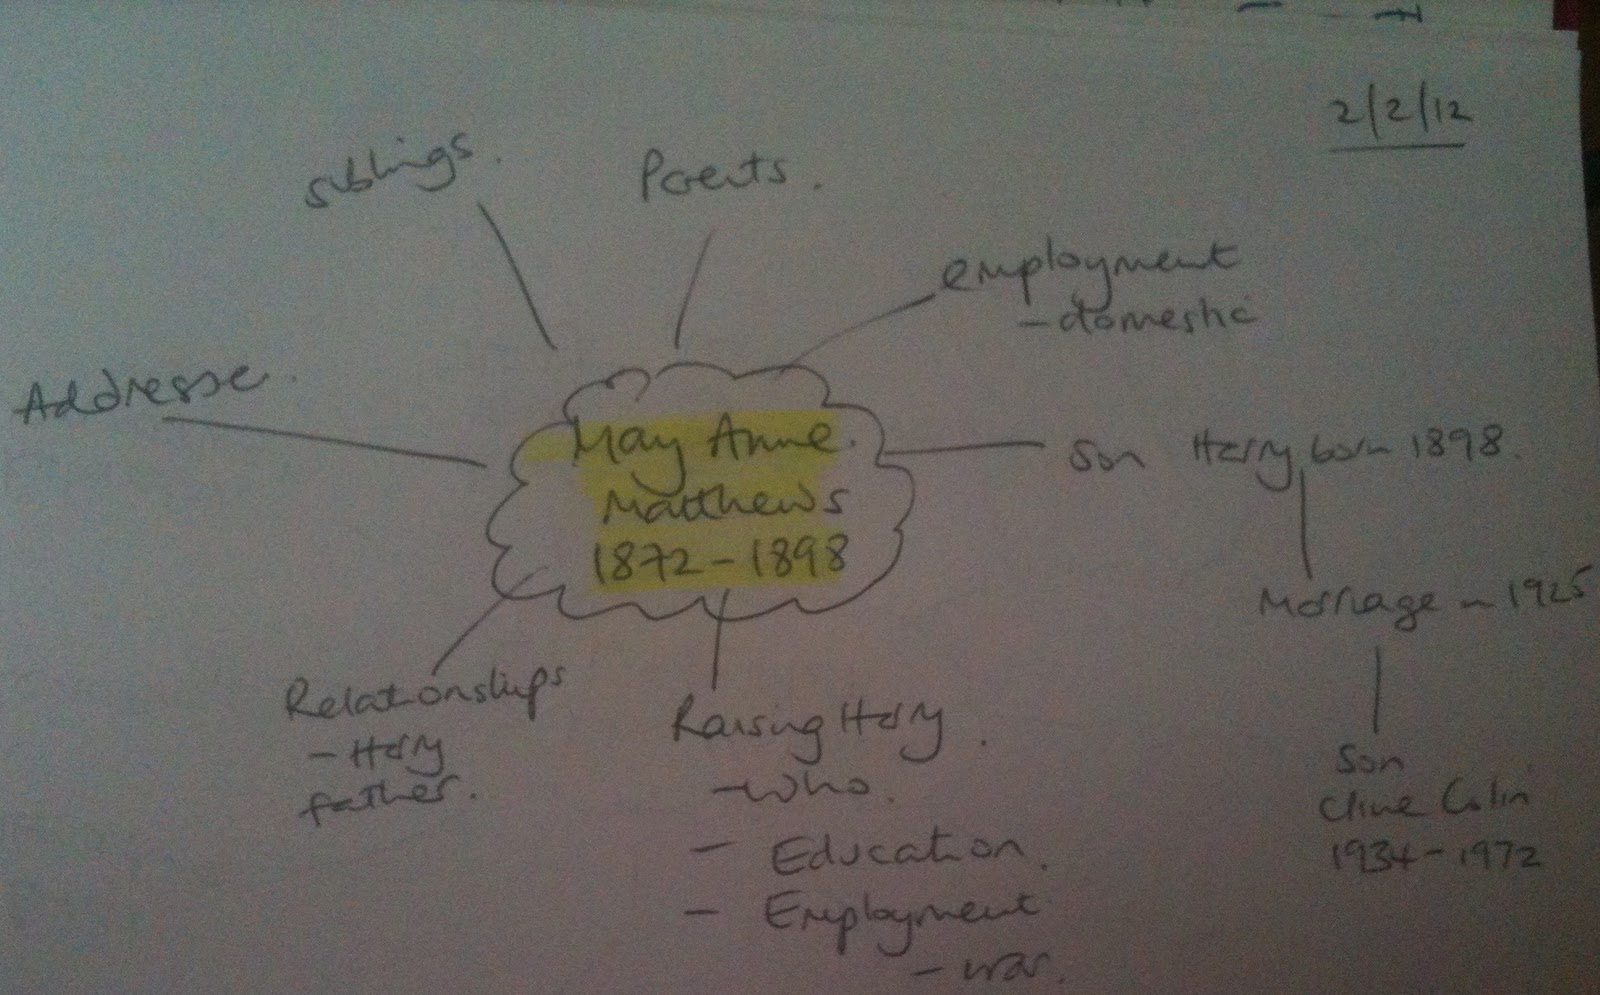 2/2/12
Siblings.
Parents.
employment
- domestic
Addresse.
May Anne.
Matthews
1872 - 1898
Son Harry born 1898.
Marriage - 1925
Son
Clive Colin
1934 - 1972
Relationships
- Harry
father.
Raising Harry.
- who.
- Education.
- Employment
- war.